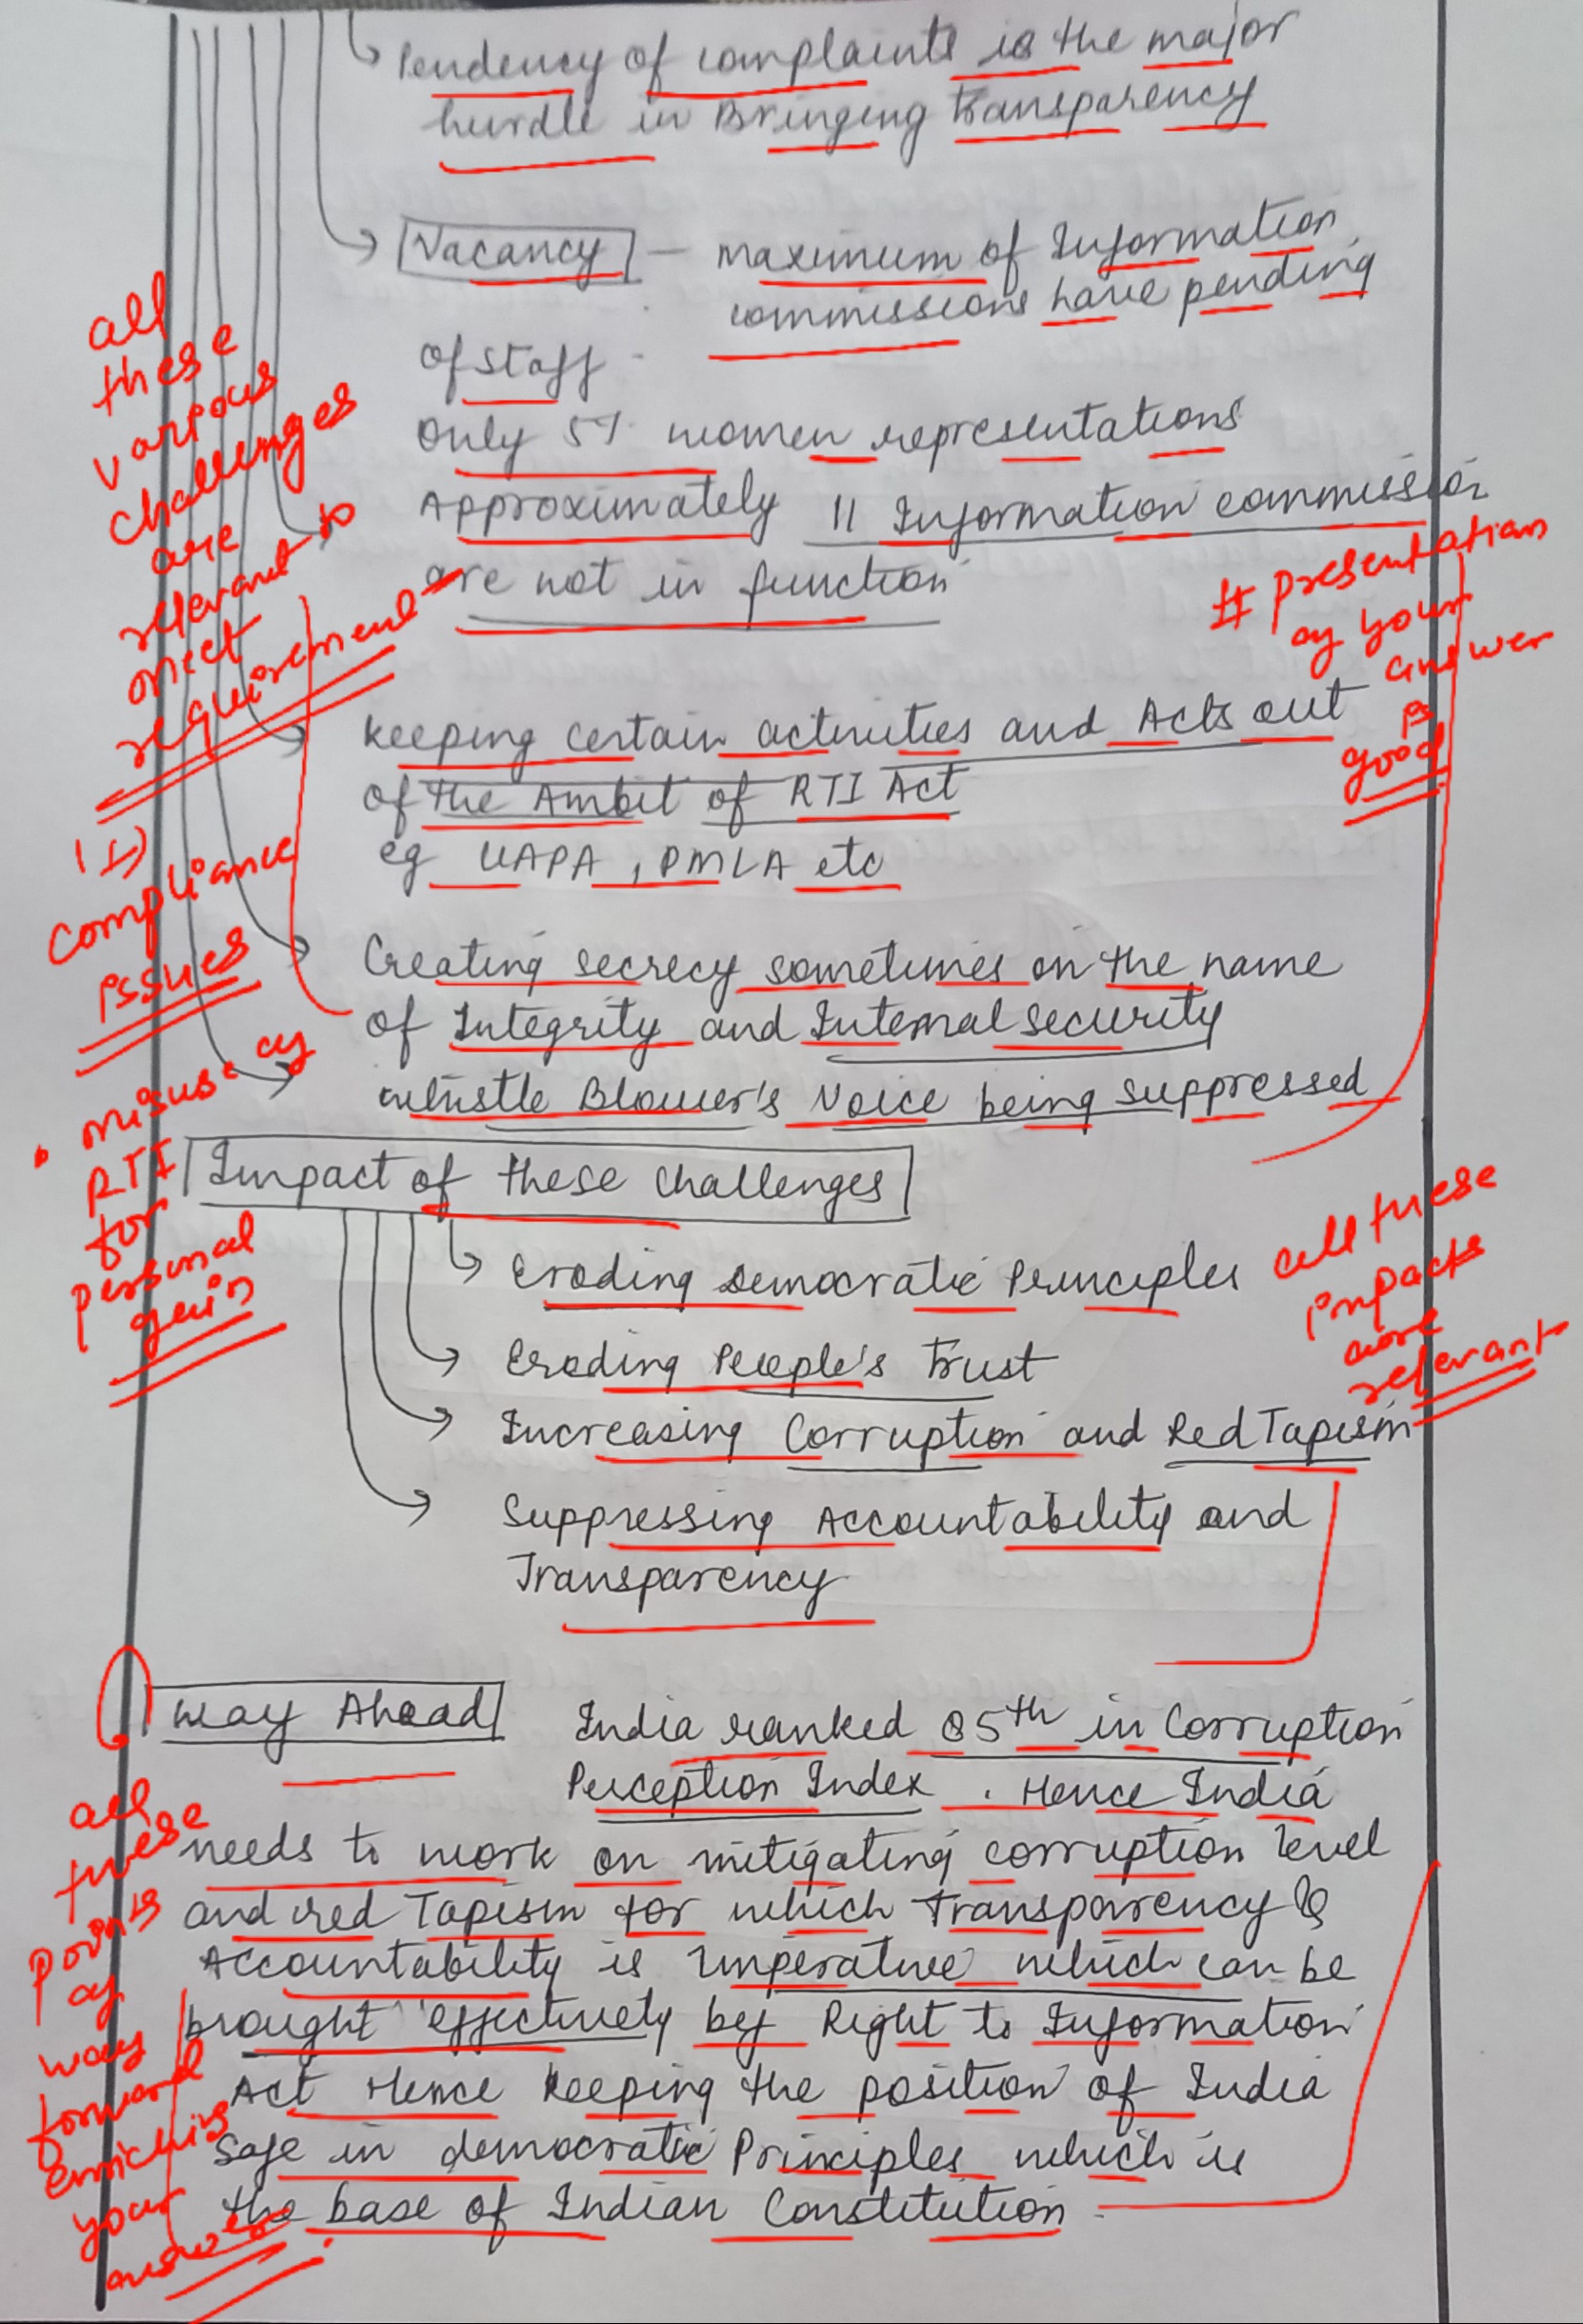 Pendency of complaints is the major
hurdle in Bringing transparency
Vacancy — maximum of Information
commissions have pending
of staff
only 5% women representations
Approximately 11 Information commission
are not in function
keeping certain activities and Acts out
of the Ambit of RTI Act
eg UAPA, PMLA etc
Creating secrecy sometimes on the name
of Integrity and Internal security
whistle Blower's Voice being suppressed
Impact of these challenges
Eroding Democratic Principles
Eroding People's trust
Increasing Corruption and Red Tapism
Suppressing Accountability and
Transparency
Way Ahead India ranked 85th in Corruption
Perception Index. Hence India
needs to work on mitigating corruption level
and red Tapism for which transparency &
Accountability is imperative which can be
brought effectively by Right to Information
Act Hence keeping the position of India
safe in democratic Principles which is
the base of Indian Constitution.
all
these
various
challenges
are
relevant to
meet
requirement
(I)
compliance
issues
• misuse of
RTI
for
personal
gain
# presentation
of your
answer
is
good
all these
impacts
are
relevant
all
these
points
of
way
forward
enriching
your
answer